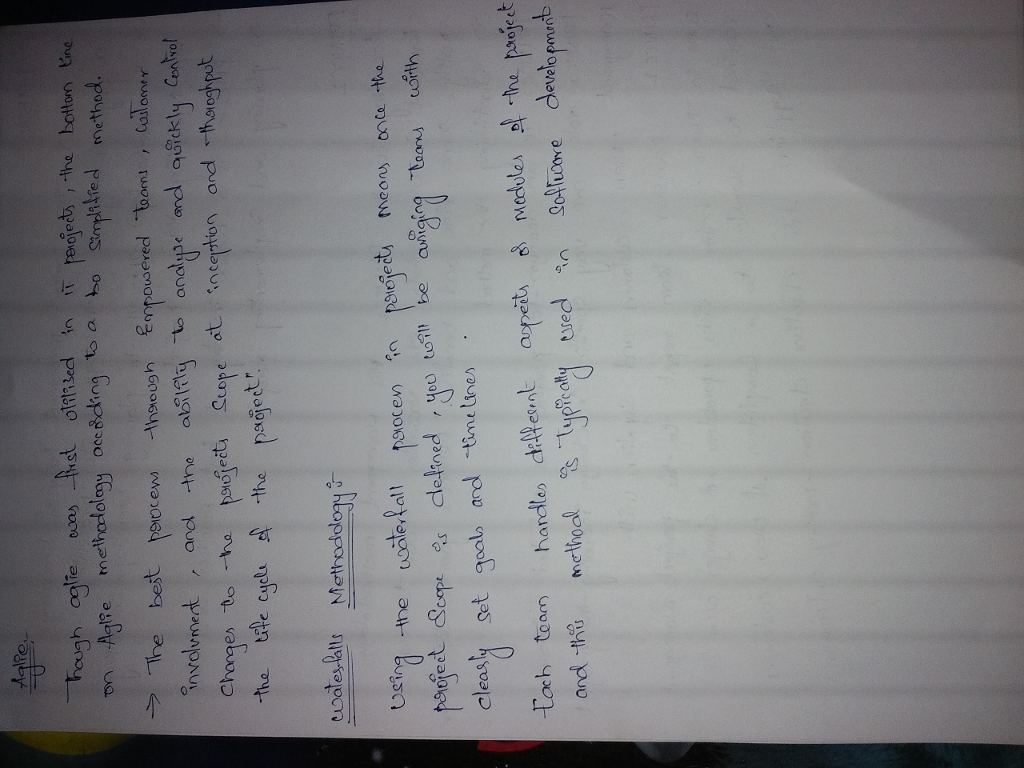 Aglie:-
Though aglie was first utilised in IT projects, the bottom line
on Aglie methodology according to a bo Simplified method.
→ The best process through Empowered teams, customer
involvment, and the ability to analyse and quickly Control
changes to the projects Scope at inception and thoroghput
the life cycle of the project".
Waterfalls Methodology:-
Using the waterfall process in projects means once the
project Scope is defined, you will be arriging teams with
clearly set goals and timelines.
Each team handles different aspects or modules of the project
and this method is Typically used in Software development